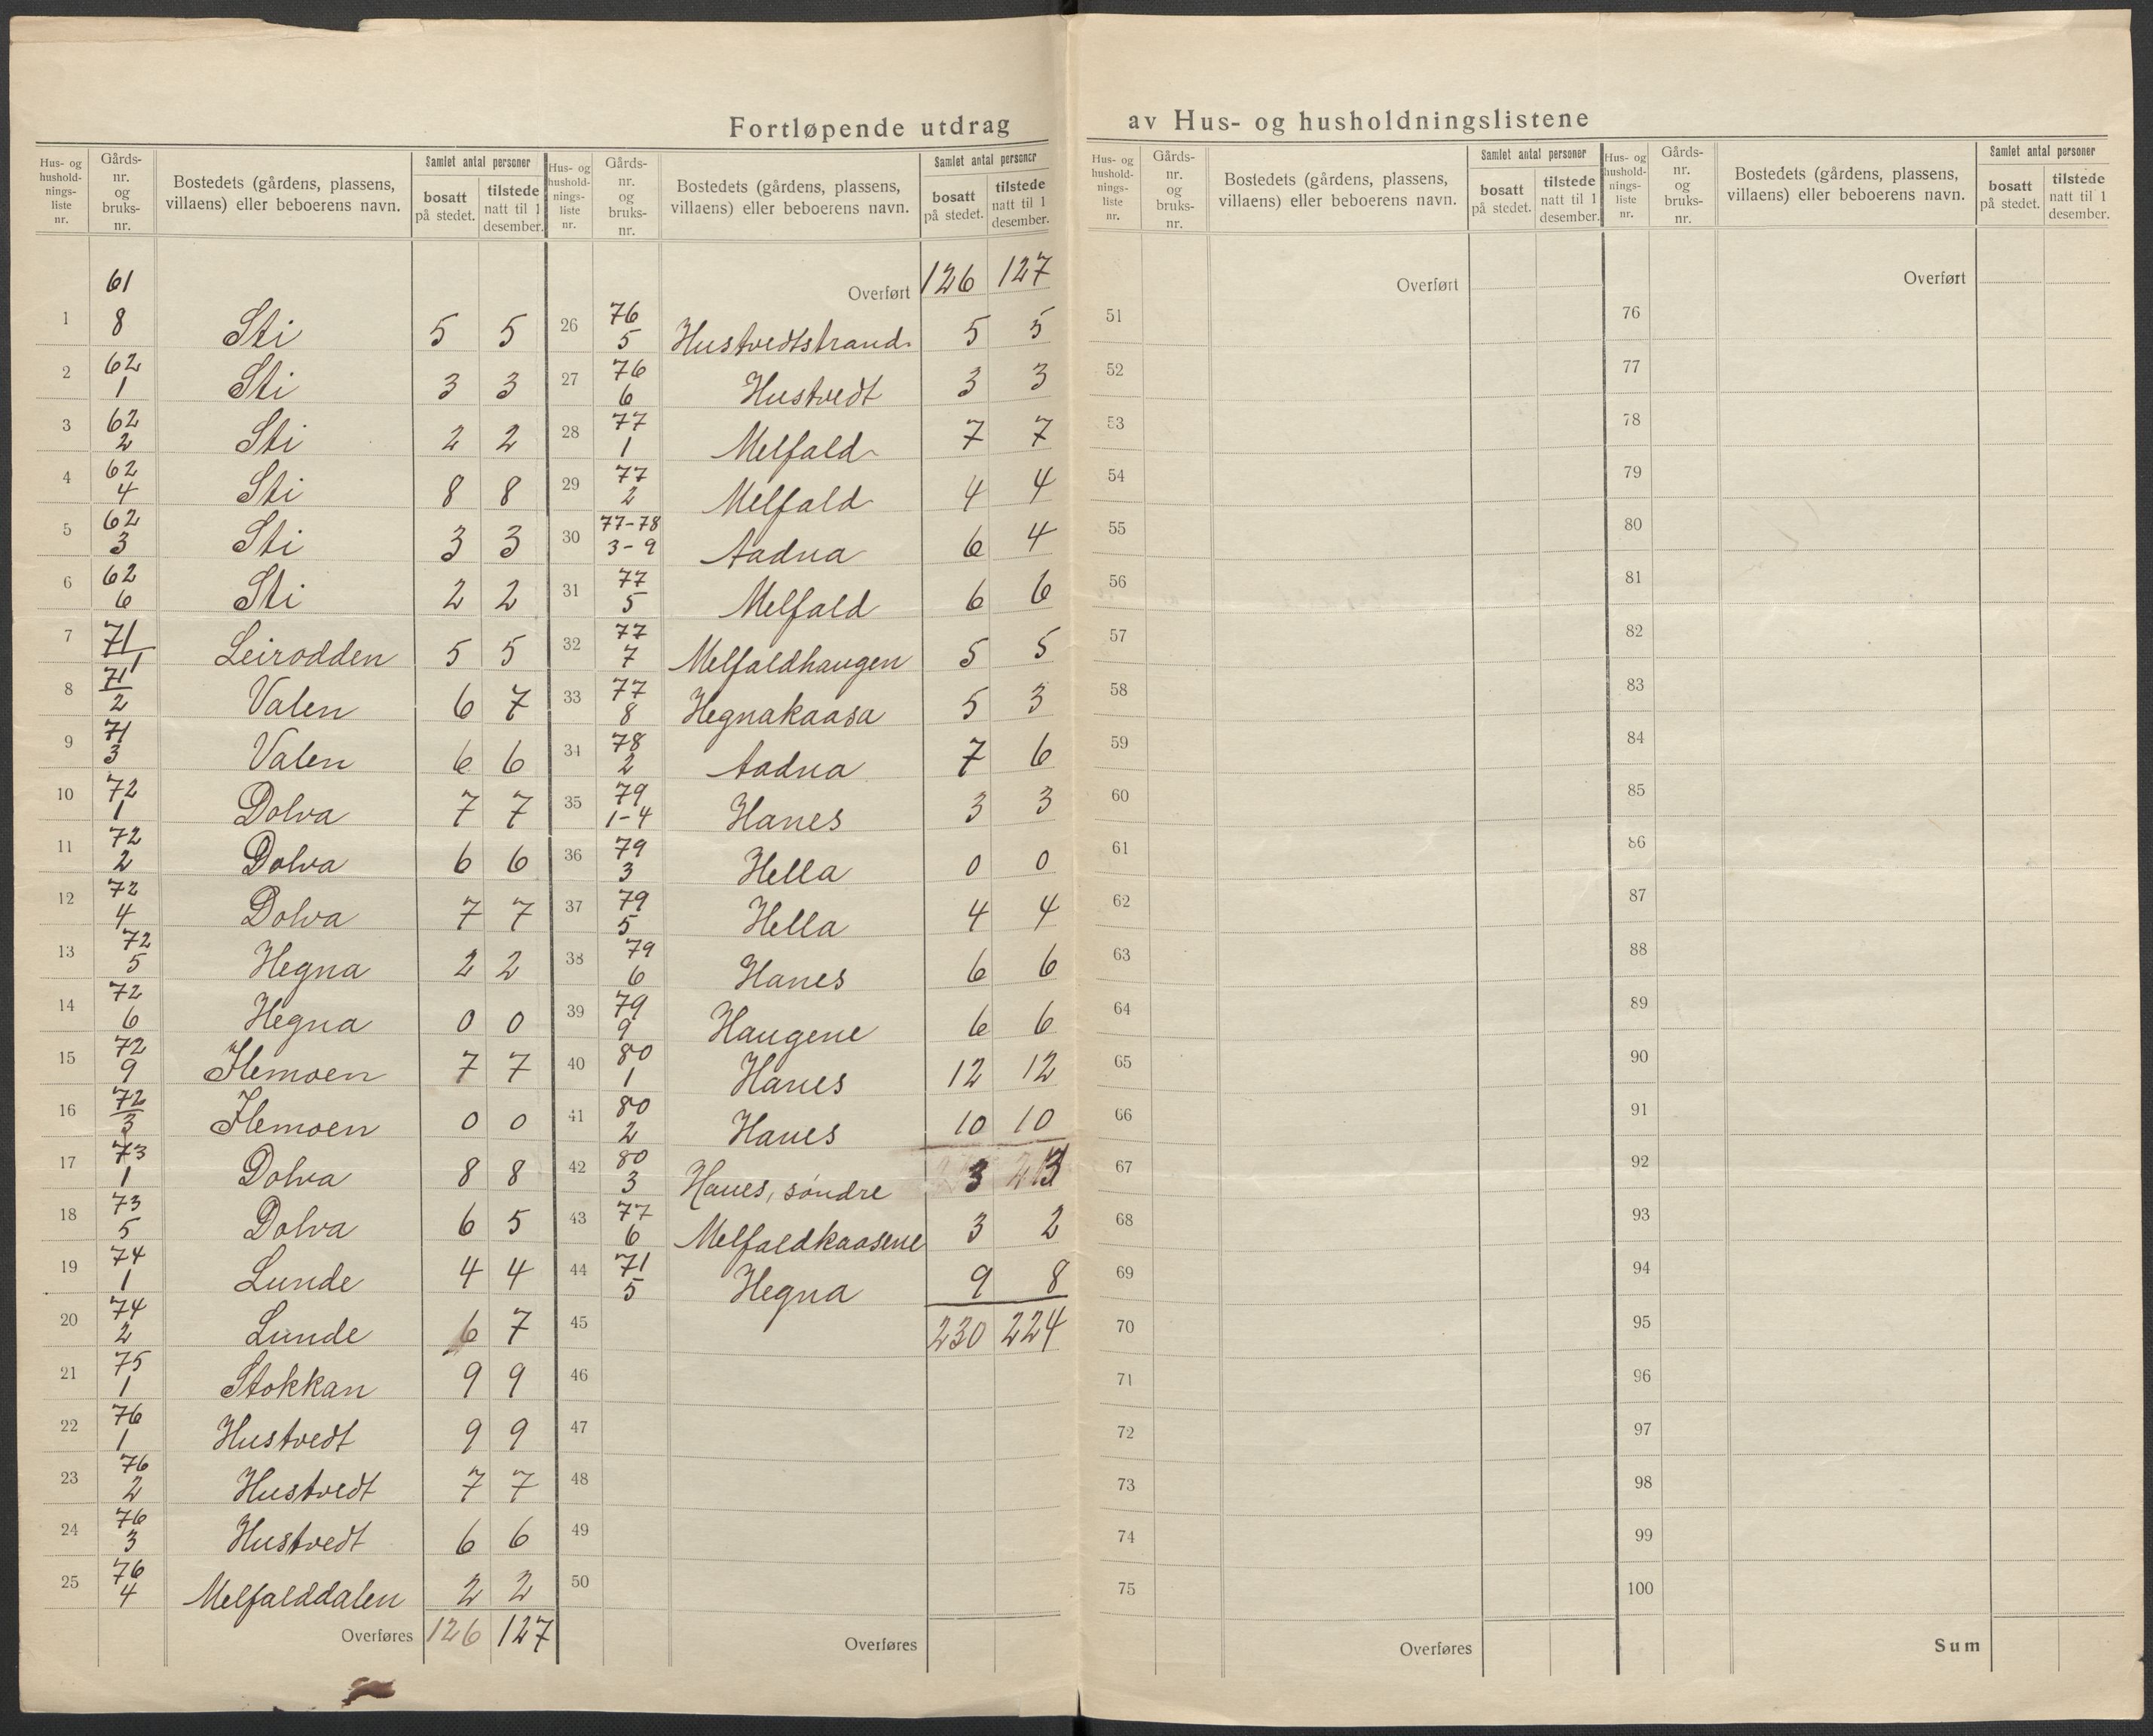 Fortløpende utdrag av Hus- og husholdningslistene
Hus- og hushold- nings- liste nr. Gårds- nr. og bruks- nr. Bostedets (gårdens, plassens, villaens) eller beboerens navn. Samlet antal personer bosatt på stedet. tilstede natt til 1 desember.
1 61 8 Sti 5 5
2 62 1 Sti 3 3
3 62 2 Sti 2 2
4 62 4 Sti 8 8
5 62 3 Sti 3 3
6 62 6 Sti 2 2
7 71 1 Leirodden 5 5
8 71 2 Valen 6 7
9 71 3 Valen 6 6
10 72 1 Dolva 7 7
11 72 2 Dolva 6 6
12 72 4 Dolva 7 7
13 72 5 Hegna 2 2
14 72 6 Hegna 0 0
15 72 9 Flemoen 7 7
16 72 3 Flemoen 0 0
17 73 1 Dolva 8 8
18 73 5 Dolva 6 5
19 74 1 Lunde 4 4
20 74 2 Lunde 6 7
21 75 1 Stokkan 9 9
22 76 1 Hustvedt 9 9
23 76 2 Hustvedt 7 7
24 76 3 Hustvedt 6 6
25 76 4 Melfalddalen 2 2
Overføres 126 127
Hus- og hushold- nings- liste nr. Gårds- nr. og bruks- nr. Bostedets (gårdens, plassens, villaens) eller beboerens navn. Samlet antal personer bosatt på stedet. tilstede natt til 1 desember.
Overført 126 127
26 76 5 Hustvedtstrand 5 5
27 76 6 Hustvedt 3 3
28 77 1 Melfald 7 7
29 77 2 Melfald 4 4
30 77-78 3-9 Aadna 6 4
31 77 5 Melfald 6 6
32 77 7 Melfaldhaugen 5 5
33 77 8 Hegnakaasa 5 3
34 78 2 Aadna 7 6
35 79 1-4 Hanes 3 3
36 79 3 Hella 0 0
37 79 5 Hella 4 4
38 79 6 Hanes 6 6
39 79 9 Haugene 6 6
40 80 1 Hanes 12 12
41 80 2 Hanes 10 10
42 80 3 Hanes, søndre 3 3
43 77 6 Melfaldkaasene 3 2
44 71 5 Hegna 9 8
45 230 224
46
47
48
49
50
Overføres
Hus- og hushold- nings- liste nr. Gårds- nr. og bruks- nr. Bostedets (gårdens, plassens, villaens) eller beboerens navn. Samlet antal personer bosatt på stedet. tilstede natt til 1 desember.
Overført
51
52
53
54
55
56
57
58
59
60
61
62
63
64
65
66
67
68
69
70
71
72
73
74
75
Overføres
Hus- og hushold- nings- liste nr. Gårds- nr. og bruks- nr. Bostedets (gårdens, plassens, villaens) eller beboerens navn. Samlet antal personer bosatt på stedet. tilstede natt til 1 desember.
Overført
76
77
78
79
80
81
82
83
84
85
86
87
88
89
90
91
92
93
94
95
96
97
98
99
100
Sum